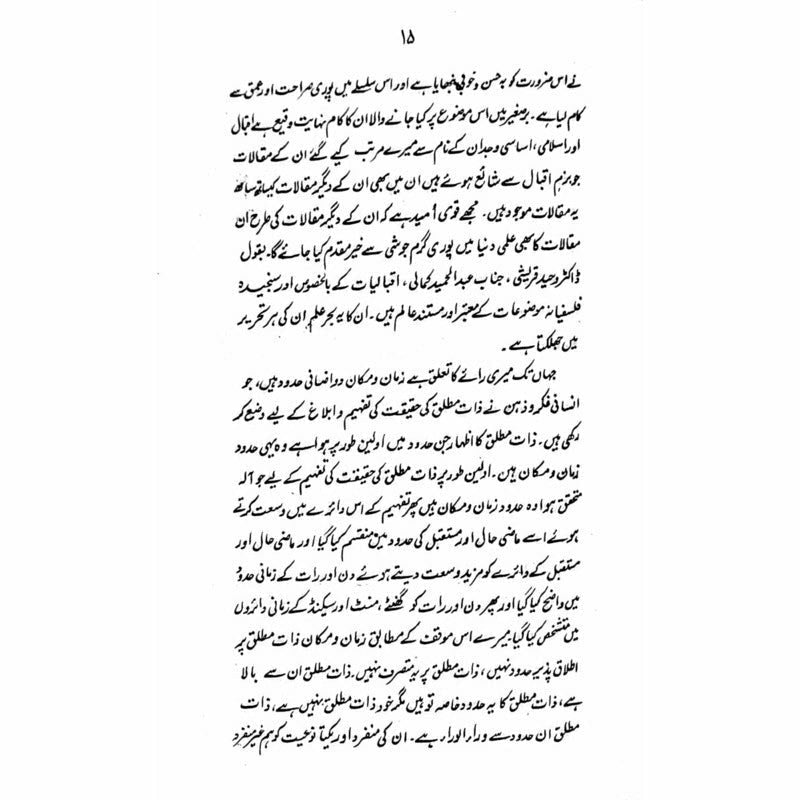 ۱۵
نے اس ضرورت کو بہ حسن و خوبی نبھایا ہے اور اس سلسلے میں پوری صراحت اور عمق سے
کام لیا ہے۔ برصغیر میں اس موضوع پر کیا جانے والا ان کا کام نہایت وقیع ہے اقبال
اور اسلامی، اساسی وجدان کے نام سے میرے مرتب کیے گئے ان کے مقالات
جو بزم اقبال سے شائع ہوئے ہیں ان میں بھی ان کے دیگر مقالات کیساتھ ساتھ
یہ مقالات موجود ہیں۔ مجھے قوی اُمید ہے کہ ان کے دیگر مقالات کی طرح ان
مقالات کا بھی علمی دنیا میں پوری گرم جوشی سے خیر مقدم کیا جائے گا۔ بقول
ڈاکٹر وحید قریشی، جناب عبدالحمید کمالی، اقبالیات کے بالخصوص اور سنجیدہ
فلسفیانہ موضوعات کے معتبر اور مستند عالم ہیں۔ ان کا یہ بحر علم ان کی ہر تحریر
میں جھلکتا ہے۔
جہاں تک میری رائے کا تعلق ہے زمان و مکان دو اضافی حدود ہیں، جو
انسانی فکر و ذہن نے ذات مطلق کی حقیقت کی تفہیم و ابلاغ کے لیے وضع کر
رکھی ہیں۔ ذات مطلق کا اظہار جن حدود میں اولین طور پر ہوا ہے وہ یہی حدود
زمان و مکان ہیں۔ اولین طور پر ذات مطلق کی حقیقت کی تفہیم کے لیے جو آلہ
متحقق ہوا وہ حدود زمان و مکان ہیں پھر تفہیم کے اس دائرے میں وسعت کرتے
ہوئے اسے ماضی حال اور مستقبل کی حدود میں منقسم کیا گیا اور ماضی حال اور
مستقبل کے دائرے کو مزید وسعت دیتے ہوئے دن اور رات کے زمانی حدود
میں واضح کیا گیا اور پھر دن اور رات کو گھنٹے، منٹ اور سیکنڈ کے زمانی دائروں
میں متشخص کیا گیا۔ میرے اس موقف کے مطابق زمان و مکان ذات مطلق پر
اطلاق پذیر حدود نہیں، ذات مطلق پر یہ متصرف نہیں۔ ذات مطلق ان سے بالا
ہے، ذات مطلق کا یہ حدود خاصہ تو ہیں مگر خود ذات مطلق نہیں ہے، ذات
مطلق ان حدود سے وراء الوراء ہے۔ ان کی منفرد اور یکتا نوعیت کو ہم غیر منفرد